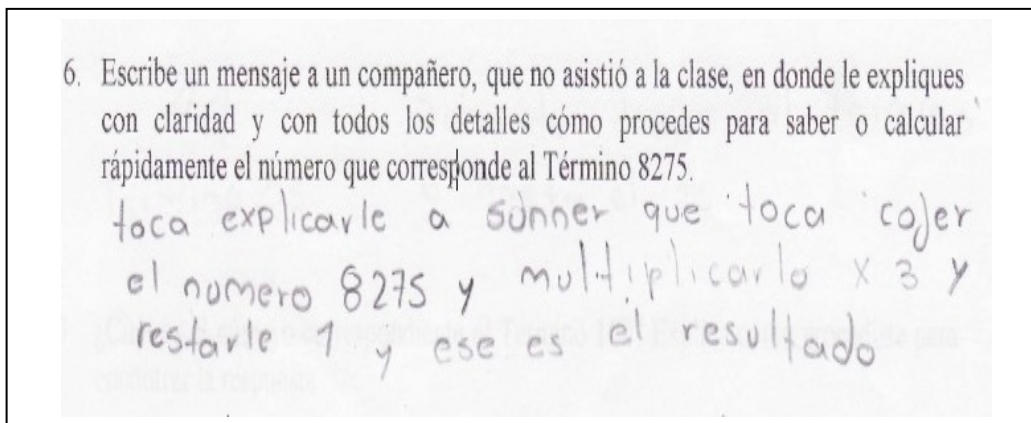 6. Escribe un mensaje a un compañero, que no asistió a la clase, en donde le expliques
con claridad y con todos los detalles cómo procedes para saber o calcular
rápidamente el número que corresponde al Término 8275.
toca explicarle a sünner que toca cojer
el numero 8275 y multiplicarlo x 3 y
restarle 1 y ese es el resultado